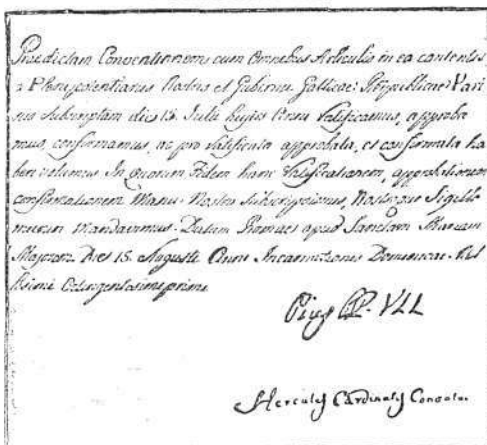 Praedictam Conventionem cum Omnibus Articulis in ea contentis
a Plenipotentiariis Nostris et Gubernii Gallicae Reipublicae Pari
siis subscriptam die 15. Julii hujus Anni Ratificamus, approba
mus, confirmamus, ac pro ratificata approbata, et confirmata ha
beri volumus In quorum Fidem hanc Ratificationem, approbationem
confirmationem Manu Nostra subscripsimus, Nostroque Sigillo
muniri mandavimus. Datum Romae apud Sanctam Mariam
Majorem Dies 15. Augusti Anno Incarnationis Dominicae Mil
lesimi Octingentesimi primi
Pius PP. VII.
Hercules Cardinalis Consalvi